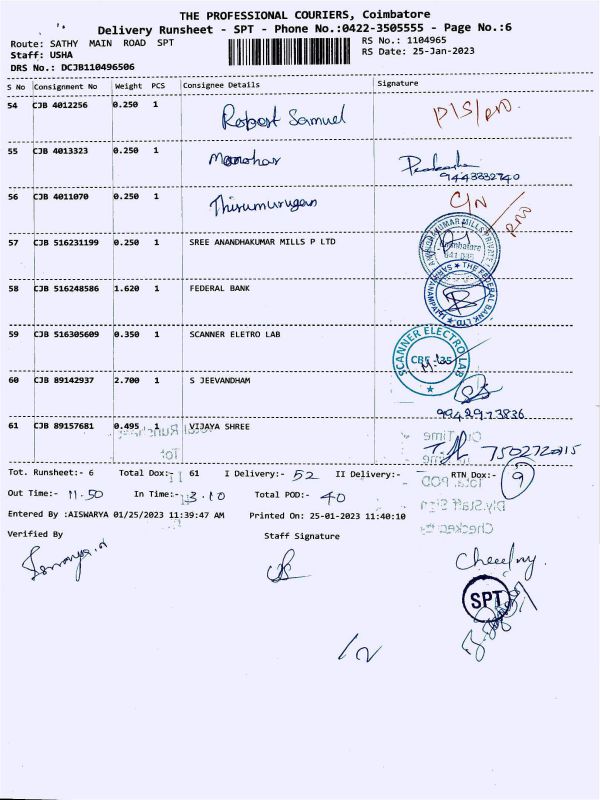 THE PROFESSIONAL COURIERS, Coimbatore
Delivery Runsheet - SPT - Phone No.:0422-3505555 - Page No.:6
Route: SATHY MAIN ROAD SPT
RS No.: 1104965
Staff: USHA
RS Date: 25-Jan-2023
DRS No.: DCJB110496506
S No Consignment No Weight PCS Consignee Details Signature
54 CJB 4012256 0.250 1 Robert Samuel
55 CJB 4013323 0.250 1 Manohar
9443332740
56 CJB 4011070 0.250 1 Thirumurugan C/N
57 CJB 516231199 0.250 1 SREE ANANDHAKUMAR MILLS P LTD
58 CJB 516248586 1.620 1 FEDERAL BANK
THE FEDERAL BANK LTD.
59 CJB 516305609 0.350 1 SCANNER ELETRO LAB
SCANNER ELECTRO LAB
60 CJB 89142937 2.700 1 S JEEVANDHAM
9942973836
61 CJB 89157681 0.495 1 VIJAYA SHREE
7502720115
Tot. Runsheet:- 6 Total Dox:- 61 I Delivery:- 52 II Delivery:- RTN Dox:- 9
Out Time:- 11.50 In Time:- 3.10 Total POD:- 40
Entered By :AISWARYA 01/25/2023 11:39:47 AM Printed On: 25-01-2023 11:40:10
Verified By Staff Signature
SPT